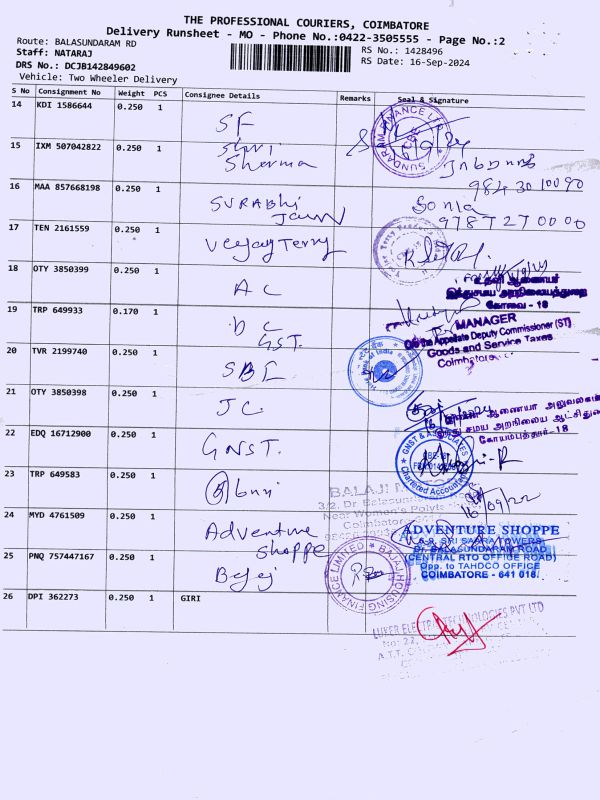 THE PROFESSIONAL COURIERS, COIMBATORE
Delivery Runsheet - MO - Phone No.:0422-3505555 - Page No.:2
Route: BALASUNDARAM RD
RS No.: 1428496
Staff: NATARAJ
RS Date: 16-Sep-2024
DRS No.: DCJB142849602
Vehicle: Two Wheeler Delivery
S No Consignment No Weight PCS Consignee Details Remarks Seal & Signature
14 KDI 1586644 0.250 1 SF
SUNDARAM FINANCE
15 IXM 507042822 0.250 1 Shri
Sharma
98430 10090
16 MAA 857668198 0.250 1 SURABhi
Jain
Sonia
97877 270000
17 TEN 2161559 0.250 1 VeejayTerry
18 OTY 3850399 0.250 1 AC
கோவை - 18
19 TRP 649933 0.170 1 DC
GST.
MANAGER
O/o the Appellate Deputy Commissioner (ST)
Goods and Service Taxes
Coimbatore
20 TVR 2199740 0.250 1 SBI
21 OTY 3850398 0.250 1 JC
இந்து சமய அறநிலைய ஆட்சித்துறை
கோயம்புத்தூர்-18
22 EDQ 16712900 0.250 1 GNST.
GNST & ASSOCIATES
Chartered Accountants
23 TRP 649583 0.250 1
BALAJI
3/2, Dr Balasundaram
Near Women's Polyte
Coimbatore
16/09/22
24 MYD 4761509 0.250 1 Adventure
Shoppe
ADVENTURE SHOPPE
SRI SAIRA TOWERS
Dr. BALASUNDARAM ROAD
(CENTRAL RTO OFFICE ROAD)
Opp. to TAHDCO OFFICE
COIMBATORE - 641 018.
25 PNQ 757447167 0.250 1 Bajaj
BAJAJ HOUSING FINANCE LIMITED
26 DPI 362273 0.250 1 GIRI
LUKER ELECTRIC TECHNOLOGIES PVT LTD
No: 22,
A.T.T.